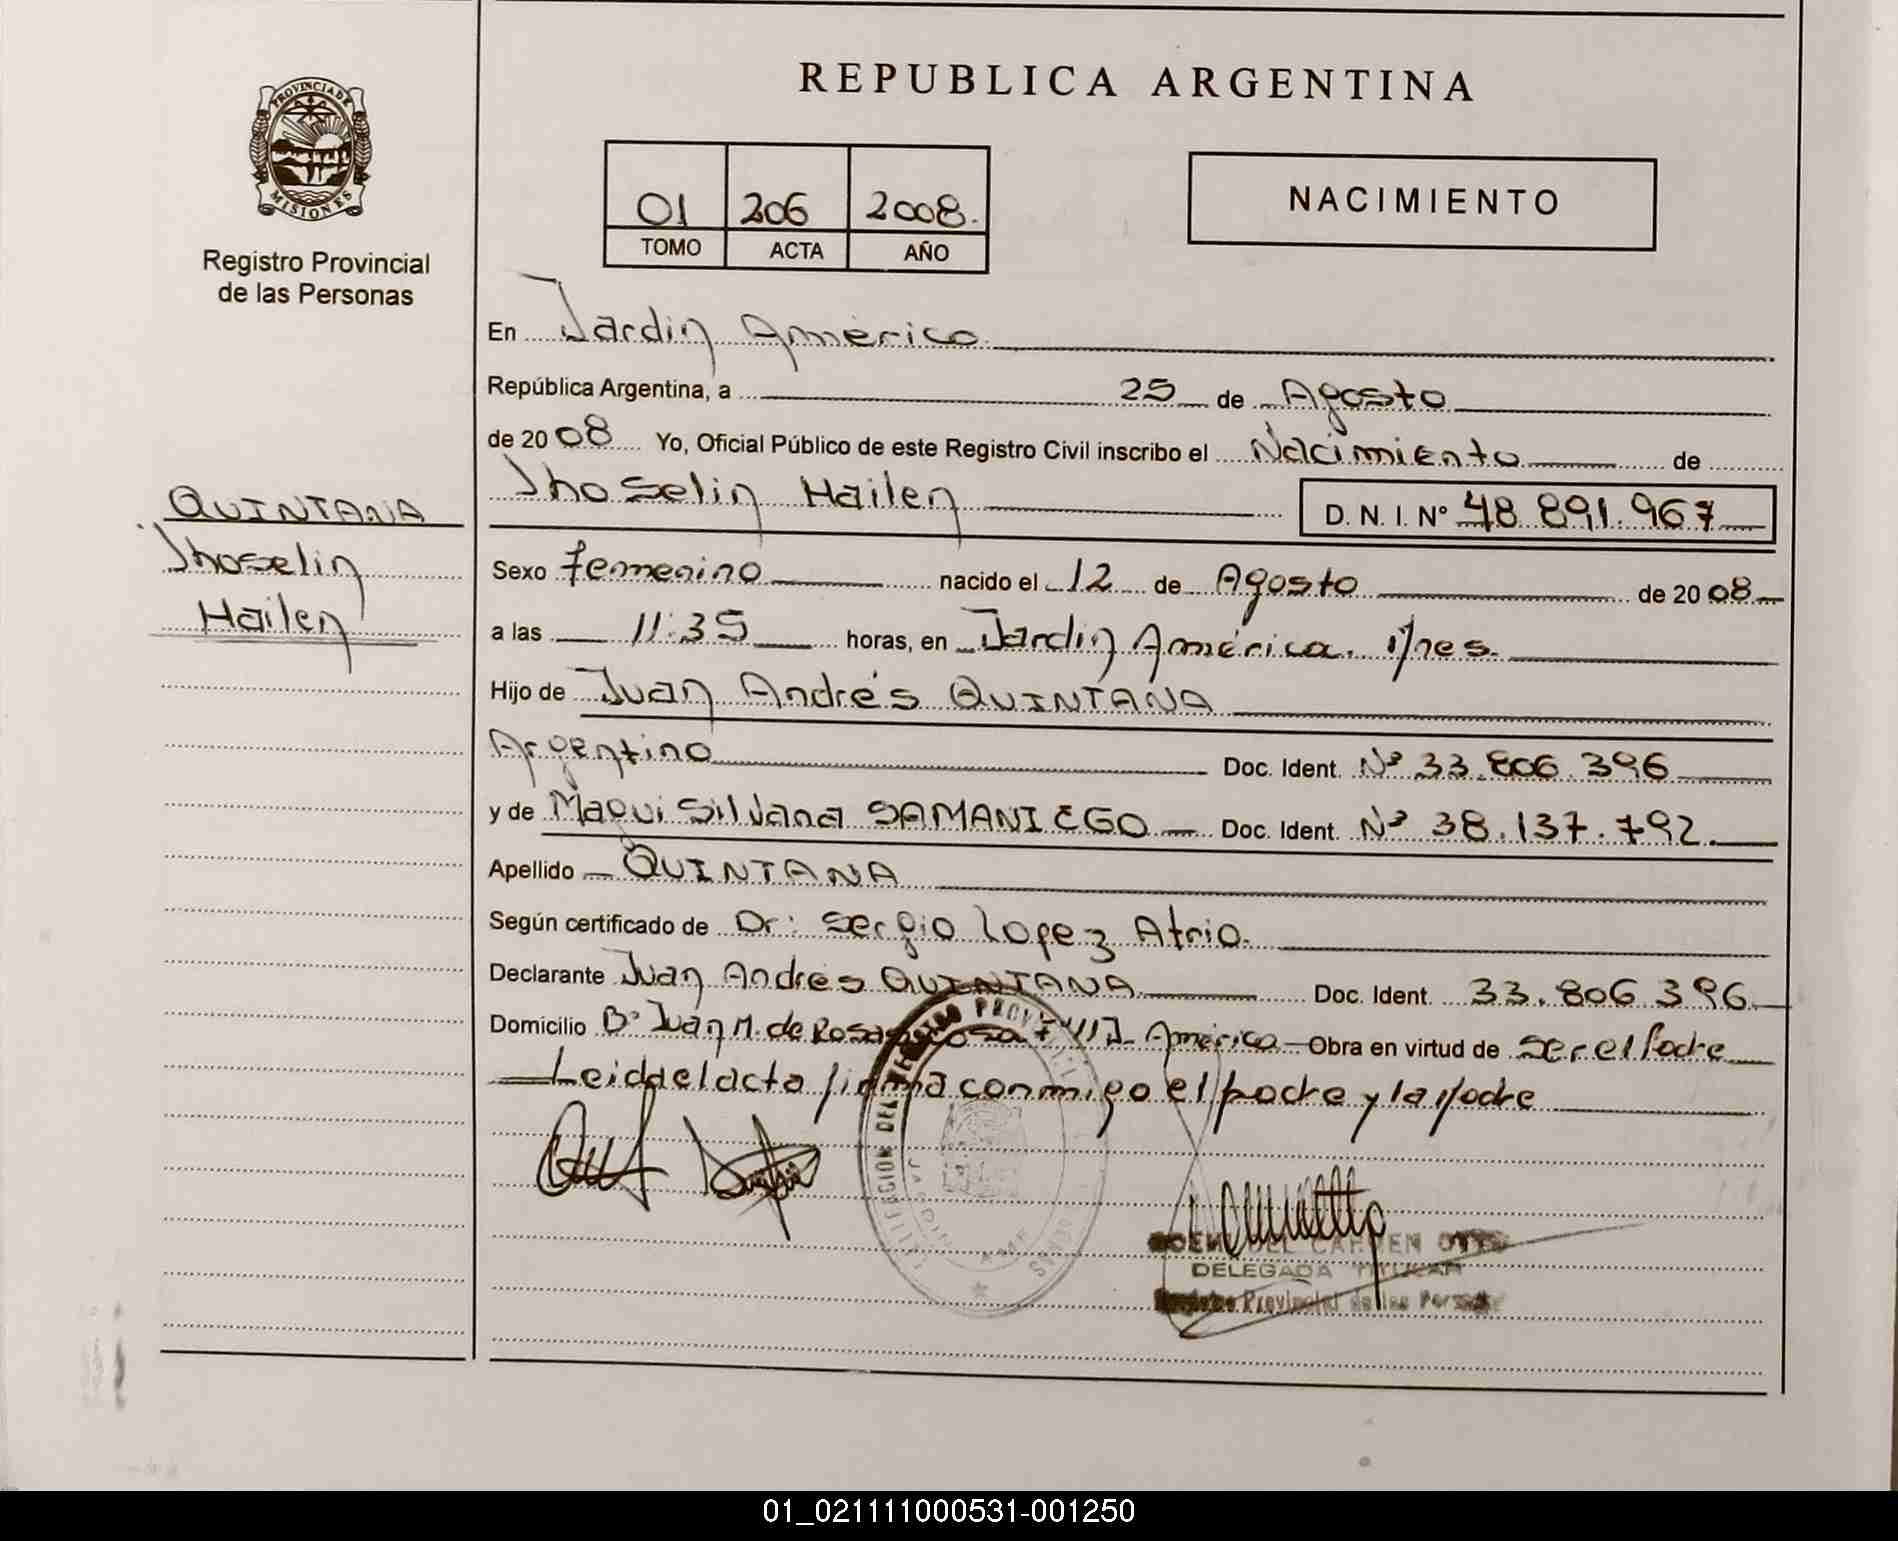 PROVINCIA DE
MISIONES
Registro Provincial
de las Personas
REPUBLICA ARGENTINA
01 206 2008.
TOMO ACTA AÑO
NACIMIENTO
En Jardin América
República Argentina, a 25 de Agosto
de 2008 Yo, Oficial Público de este Registro Civil inscribo el Nacimiento de
Jhoselin Hailen D. N. I. Nº 48.891.967
QUINTANA
Jhoselin
Hailen
Sexo femenino nacido el 12 de Agosto de 2008
a las 11:35 horas, en Jardin América.
Hijo de Juan Andrés QUINTANA
Argentino Doc. Ident. Nº 33.806.396
y de Maqui Silvana SAMANIEGO Doc. Ident. Nº 38.137.792.
Apellido QUINTANA
Según certificado de Dr: Sergio Lopez Atrio.
Declarante Juan Andrés QUINTANA Doc. Ident. 33.806.396
Domicilio Bº Juan M. de Rosas América Obra en virtud de ser el Padre
Leida el acta firma conmigo el padre y la Madre
DEL CARMEN
DELEGADA TITULAR
Registro Provincial de las Personas
01_021111000531-001250